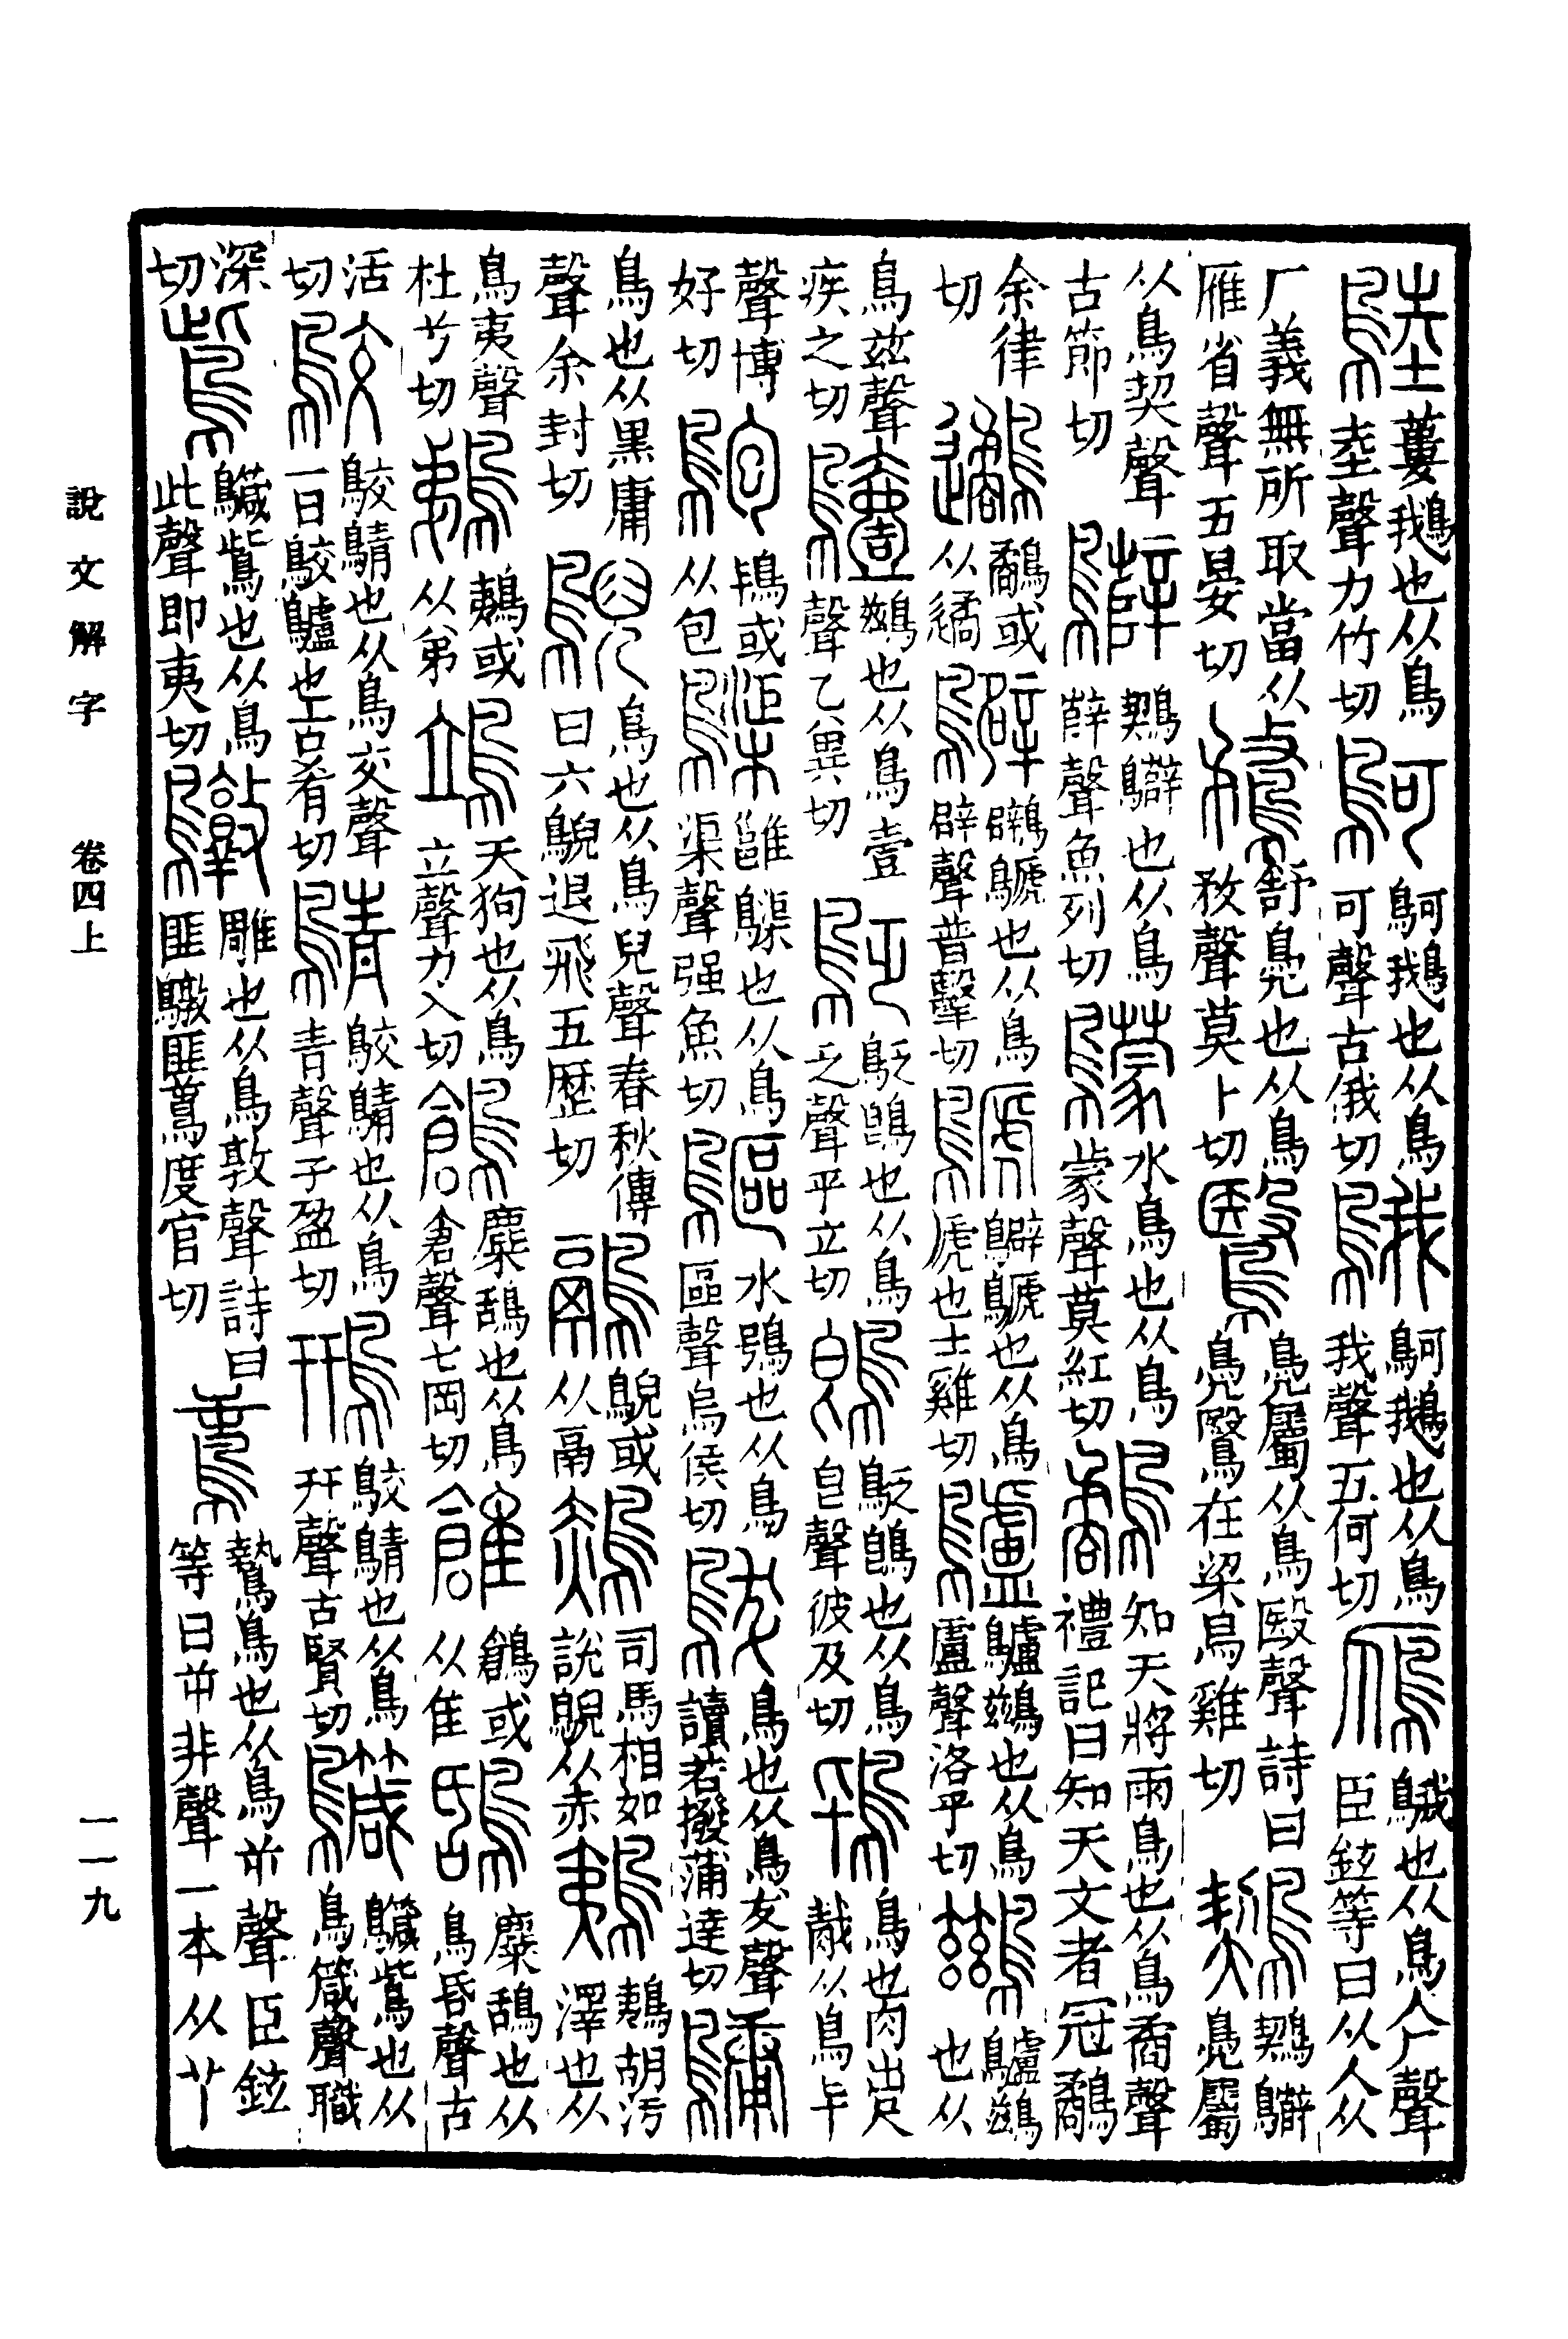 鵱蔞鵝也从鳥坴聲力竹切鴚鴚鵝也从鳥可聲古俄切鵝鴚鵝也从鳥我聲五何切鴈䳘也从鳥人厂聲臣鉉等曰从人从
厂義無所取當从雁省聲五晏切鶩舒鳧也从鳥敄聲莫卜切鷖鳧屬从鳥殹聲詩曰鳧鷖在梁烏雞切䳶䳶鳧屬
从鳥契聲古節切䳶也从鳥辥聲魚列切鸏水鳥也从鳥蒙聲莫紅切鷸知天將雨鳥也从鳥矞聲禮記曰知天文者冠鷸
余律切鷸或从遹鷿鷿鷉也从鳥辟聲普擊切鷉鷿鷉也从鳥虒聲土雞切鸕鸕鷀也从鳥盧聲洛乎切鷀鸕鷀也从
鳥兹聲疾之切鷧鷀也从鳥壹聲乙冀切鴔鴔鵖也从鳥乏聲平立切鵖鴔鵖也从鳥皀聲彼及切鴇鳥也肉出尺胾从鳥𠤏
聲博好切鴇或从包雝也从鳥渠聲强魚切鷗水鴞也从鳥區聲烏侯切䳊鳥也从鳥犮聲讀若撥蒲達切鷛
鳥也从鳥庸聲余封切鶂鳥也从鳥兒聲春秋傳曰六鶂退飛五歷切鷊鶂或从鬲司馬相如說鶂从赤鴺鴺胡污澤也从
鳥夷聲杜兮切鵜鴺或从弟鴗天狗也从鳥立聲力入切鶬麋鴰也从鳥倉聲七岡切鶬或从隹鴰麋鴰也从鳥昏聲古
活切鵁鵁鶄也从鳥交聲一曰鵁鸕也古肴切鶄鵁鶄也从鳥青聲子盈切鳽鵁鶄也从鳥幵聲古賢切鴜也从鳥箴聲職
深切鴜鴜也从鳥此聲即夷切鷻雕也从鳥敦聲詩曰匪鷻匪鳶度官切鷙鳥也从鳥屰聲臣鉉等曰屰非聲一本从
說文解字　卷四上
一一九